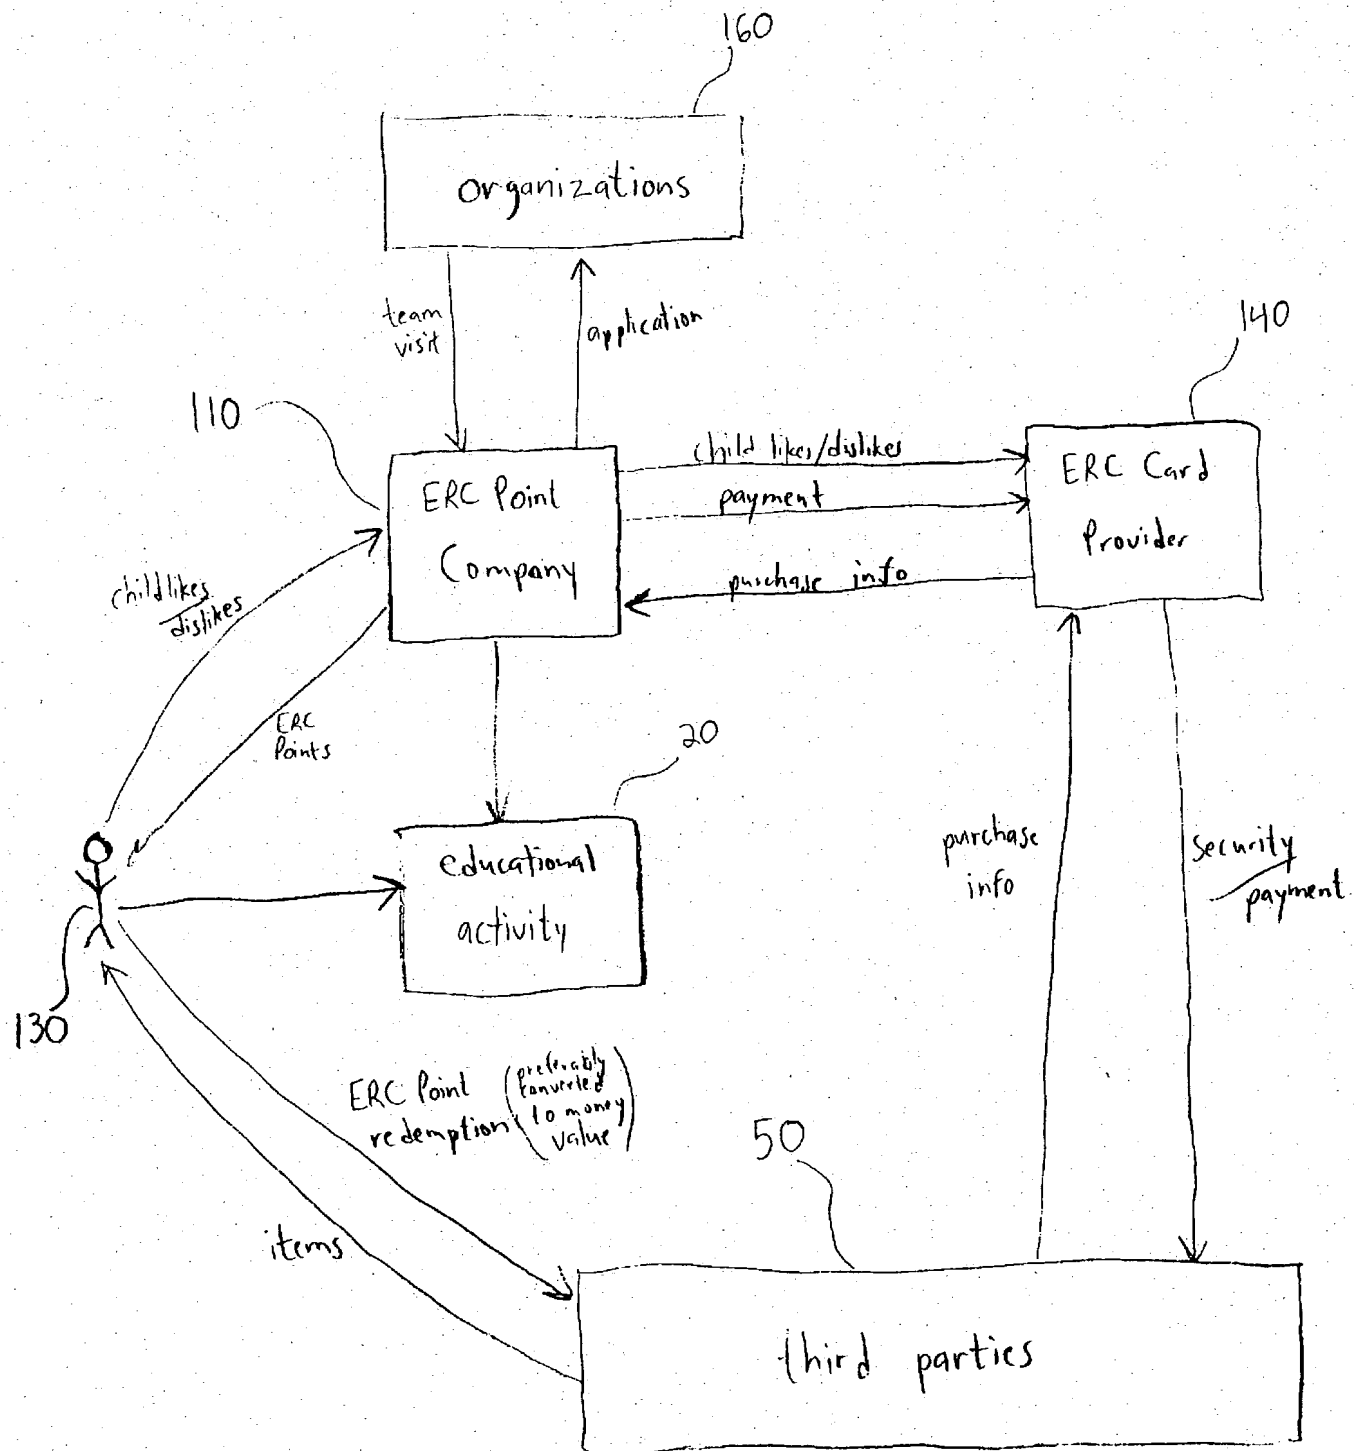 160
organizations
team
visit
application
140
110
ERC Point
Company
child likes/dislikes
payment
purchase info
ERC Card
Provider
child likes/
dislikes
ERC
Points
20
educational
activity
purchase
info
security/
payment
130
ERC Point
redemption
(preferably
converted
to money
value)
50
items
third parties